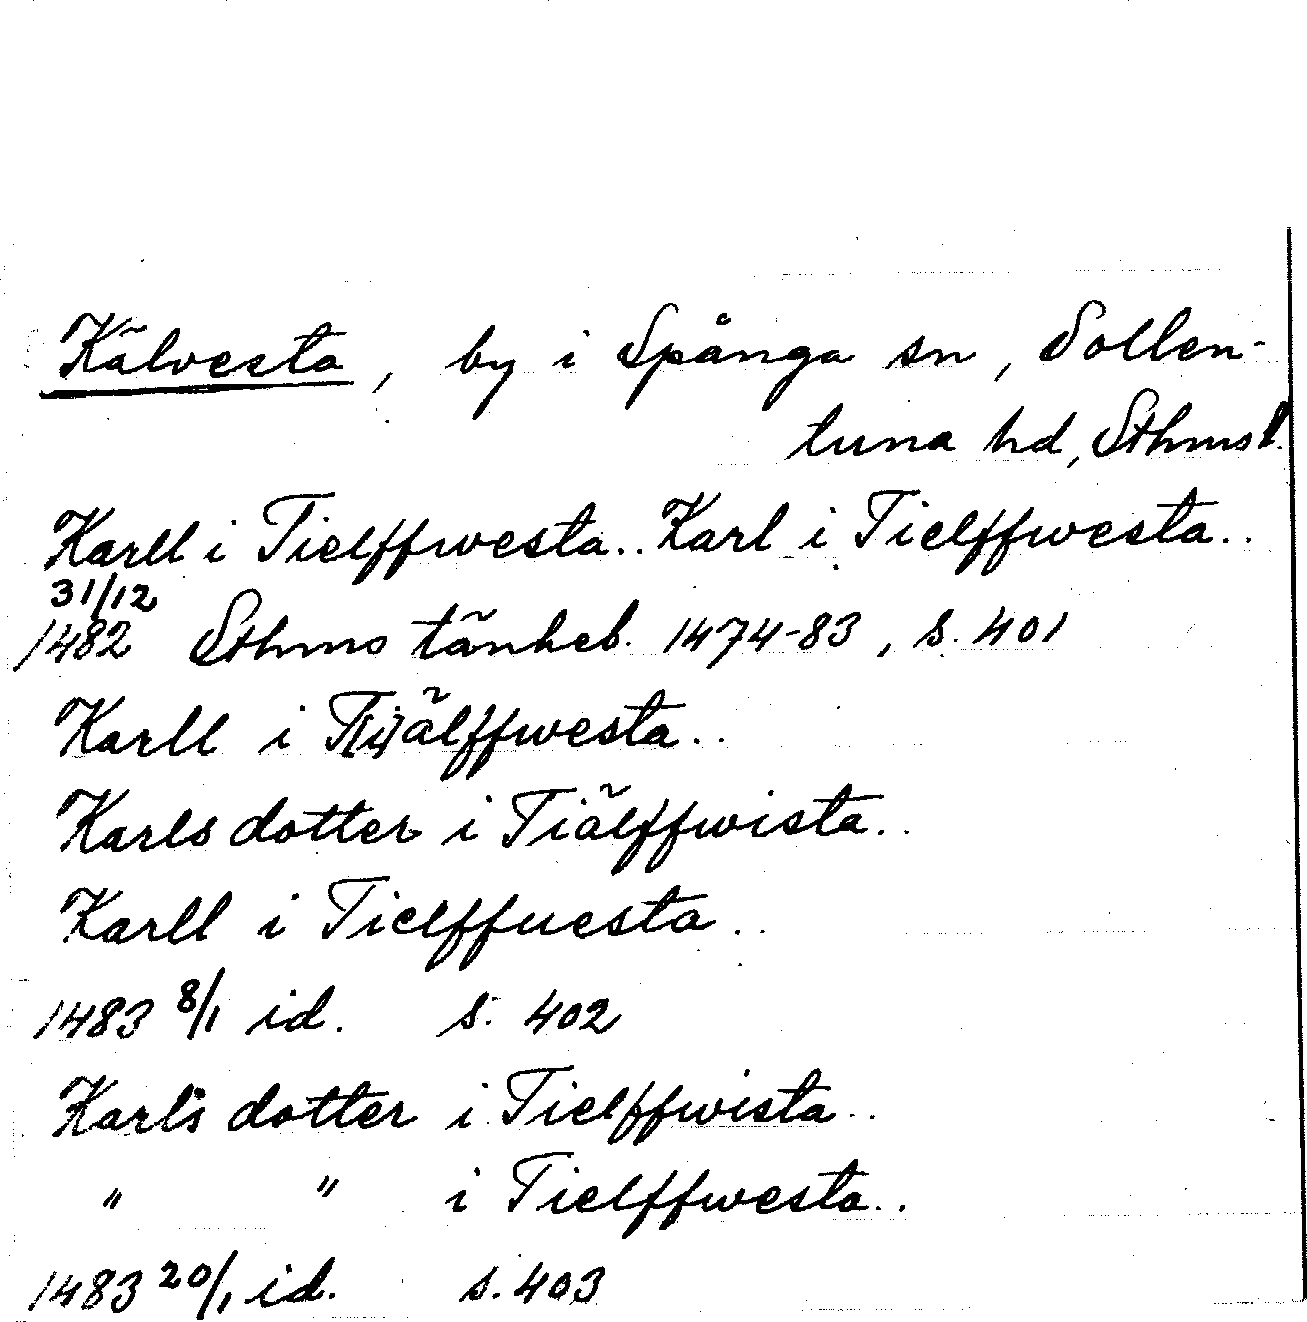 Kälvesta, by i Spånga sn, Sollen-
tuna hd, Sthms l.
Karll i Tielffwesta.. Karl i Tielffwesta..
31/12
1482 Sthms tänkeb. 1474-83, s. 401
Karll i T[i]älffwesta..
Karls dotter i Tiälffwista..
Karll i Tielffuesta..
1483 8/1 id. s. 402
Karls dotter i Tielffwista..
" " i Tielffwesta..
1483 20/1 id. s. 403